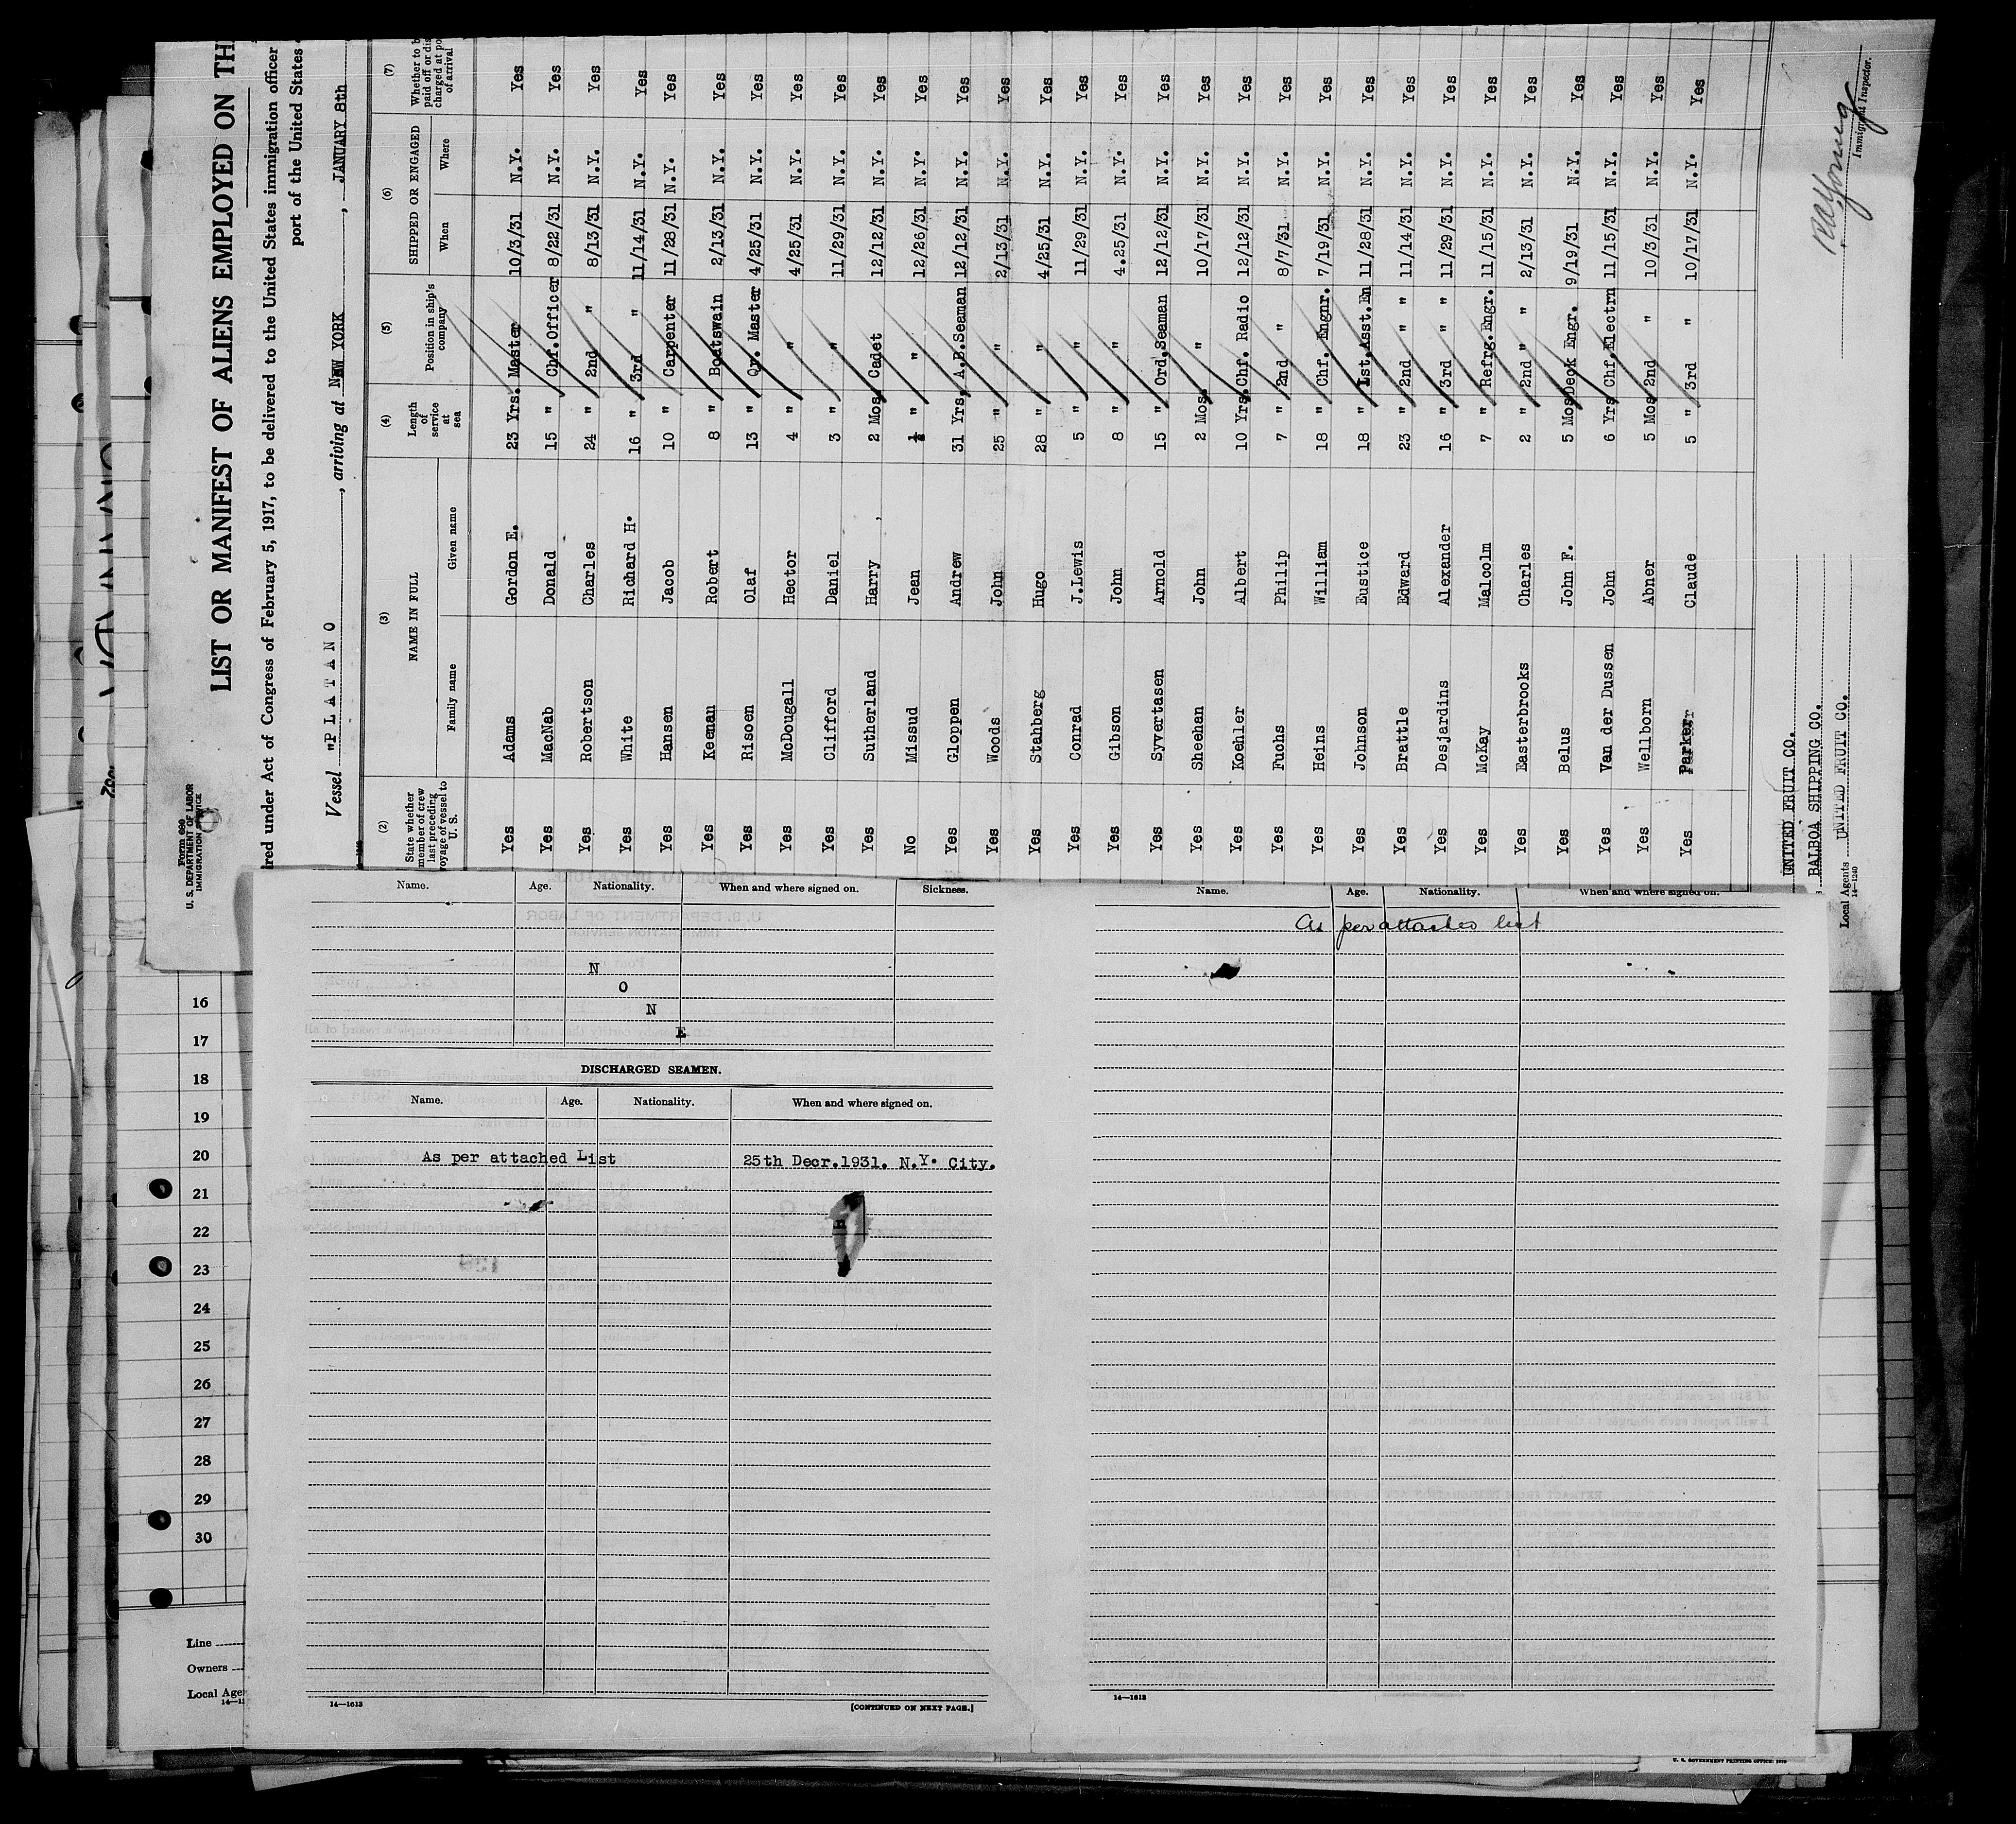 Form 680
U. S. DEPARTMENT OF LABOR
IMMIGRATION SERVICE
LIST OR MANIFEST OF ALIENS EMPLOYED ON TH
red under Act of Congress of February 5, 1917, to be delivered to the United States immigration officer
port of the United States
Vessel "P L A T A N O , arriving at NEW YORK , JANUARY 8th
(2) (3) (4) (5) (6) (7)
State whether member of crew last preceding voyage of vessel to U. S.
NAME IN FULL
Family name Given name
Length of service at sea
Position in ship's company
SHIPPED OR ENGAGED
When Where
Whether to b paid off or dis charged at po of arrival
Yes Adams Gordon E. 23 Yrs. Master 10/3/31 N.Y. Yes
Yes MacNab Donald 15 " Chf.Officer 8/22/31 N.Y. Yes
Yes Robertson Charles 24 " 2nd " 8/13/31 N.Y. Yes
Yes White Richard H. 16 " 3rd " 11/14/31 N.Y. Yes
Yes Hansen Jacob 10 " Carpenter 11/28/31 N.Y. Yes
Yes Keenan Robert 8 " Boatswain 2/13/31 N.Y. Yes
Yes Risoen Olaf 13 " Qr. Master 4/25/31 N.Y. Yes
Yes McDougall Hector 4 " " 4/25/31 N.Y. Yes
Yes Clifford Daniel 3 " " 11/29/31 N.Y. Yes
Yes Sutherland Harry 2 Mos. Cadet 12/12/31 N.Y. Yes
No Missud Jean ½ " " 12/26/31 N.Y. Yes
Yes Gloppen Andrew 31 Yrs. A.B.Seaman 12/12/31 N.Y. Yes
Yes Woods John 25 " " 2/13/31 N.Y. Yes
Yes Stahberg Hugo 28 " " 4/25/31 N.Y. Yes
Yes Conrad J.Lewis 5 " " 11/29/31 N.Y. Yes
Yes Gibson John 8 " " 4.25/31 N.Y. Yes
Yes Syvertasen Arnold 15 " Ord.Seaman 12/12/31 N.Y. Yes
Yes Sheehan John 2 Mos. " 10/17/31 N.Y. Yes
Yes Koehler Albert 10 Yrs. Chf. Radio 12/12/31 N.Y. Yes
Yes Fuchs Philip 7 " 2nd " 8/7/31 N.Y. Yes
Yes Heins William 18 " Chf. Engnr. 7/19/31 N.Y. Yes
Yes Johnson Eustice 18 " 1st.Asst.En 11/28/31 N.Y. Yes
Yes Brattle Edward 23 " 2nd " " 11/14/31 N.Y. Yes
Yes Desjardins Alexander 16 " 3rd " " 11/29/31 N.Y. Yes
Yes McKay Malcolm 7 " Refrg.Engr. 11/15/31 N.Y. Yes
Yes Easterbrooks Charles 2 " 2nd " " 2/13/31 N.Y. Yes
Yes Belus John F. 5 Mos Deck Engr. 9/19/31 N.Y. Yes
Yes Van der Dussen John 6 Yrs Chf.Electrn 11/15/31 N.Y. Yes
Yes Wellborn Abner 5 Mos 2nd " 10/3/31 N.Y. Yes
Yes Parker Claude 5 " 3rd " 10/17/31 N.Y. Yes
UNITED FRUIT CO.
BALBOA SHIPPING CO.
Local Agents UNITED FRUIT CO.
14—1240
Immigrant Inspector.
Name. Age. Nationality. When and where signed on. Sickness.
N
O
N
E
DISCHARGED SEAMEN.
Name. Age. Nationality. When and where signed on.
As per attached List 25th Decr.1931. N.Y. City.
14—1613 [CONTINUED ON NEXT PAGE.]
Name. Age. Nationality. When and where signed on.
As per attached list
14—1613
16
17
18
19
20
21
22
23
24
25
26
27
28
29
30
Line
Owners
Local Age
U. S. GOVERNMENT PRINTING OFFICE: